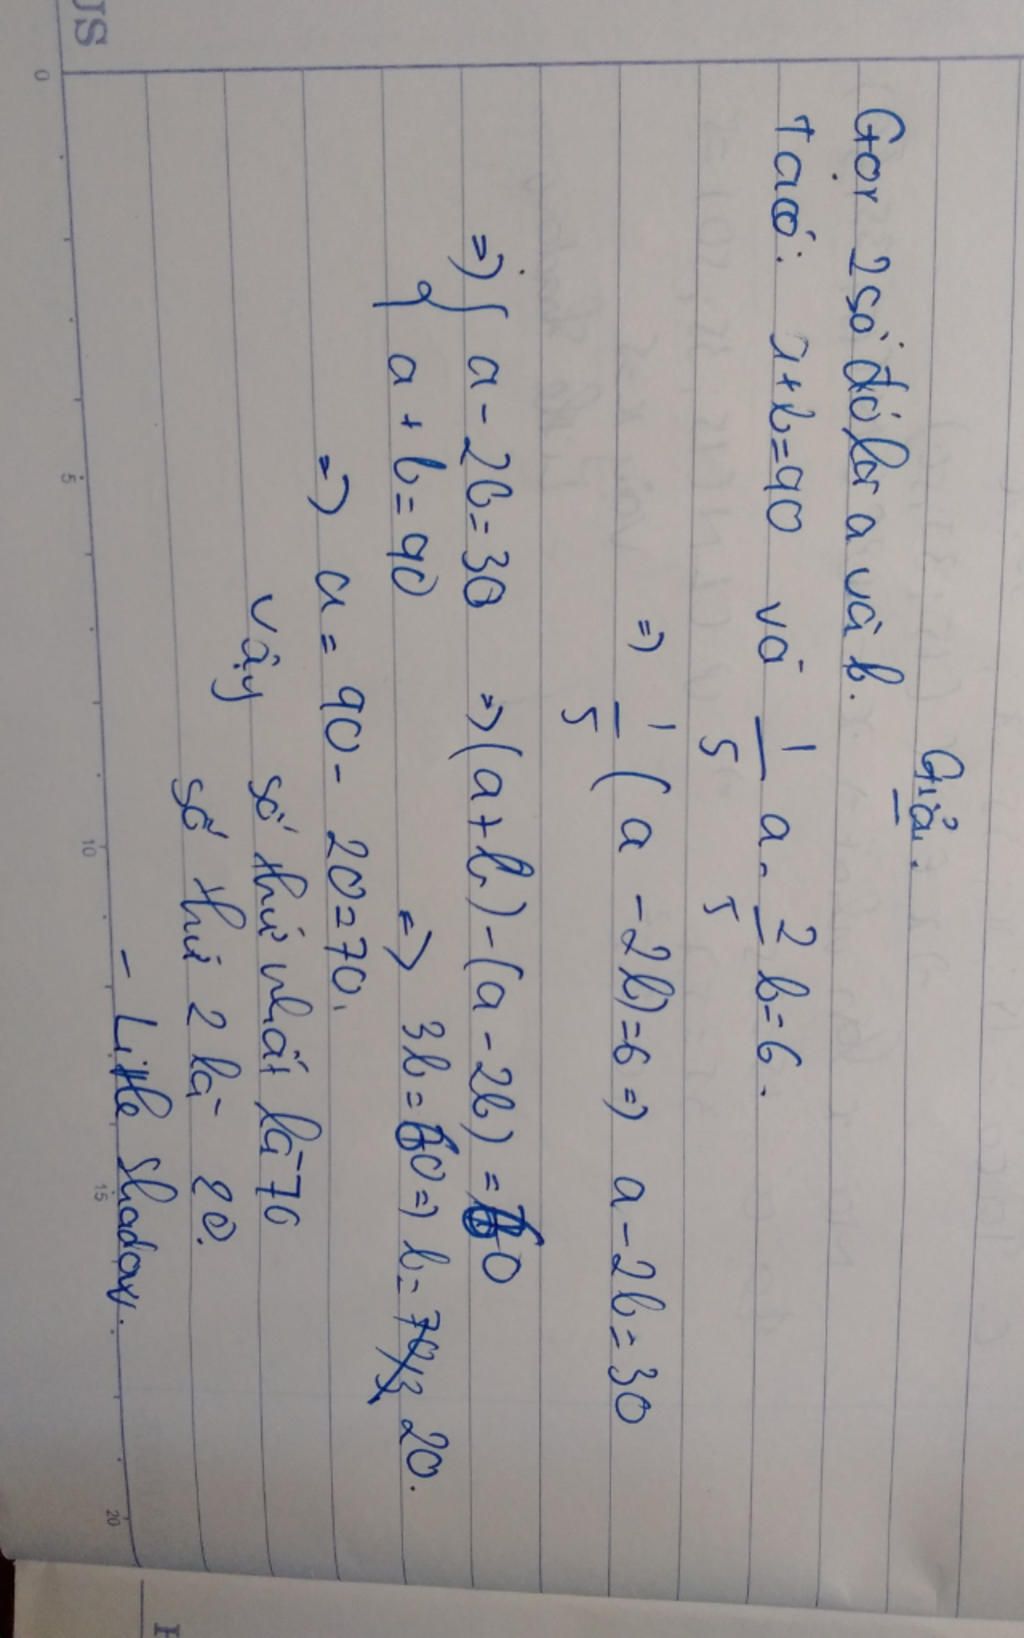 Giải.
Gọi 2 số đó là a và b.
Ta có: a+b=90 và 1/5 a - 2/5 b=6.
=> 1/5 (a - 2b)=6 => a-2b=30
=> { a-2b=30 => (a+b)-(a-2b)=60
a+b=90 => 3b=60=> b= 70/3 20.
=> a= 90- 20=70.
Vậy số thứ nhất là 70
số thứ 2 là 20.
- Little shadow.
US
0 5 10 15 20